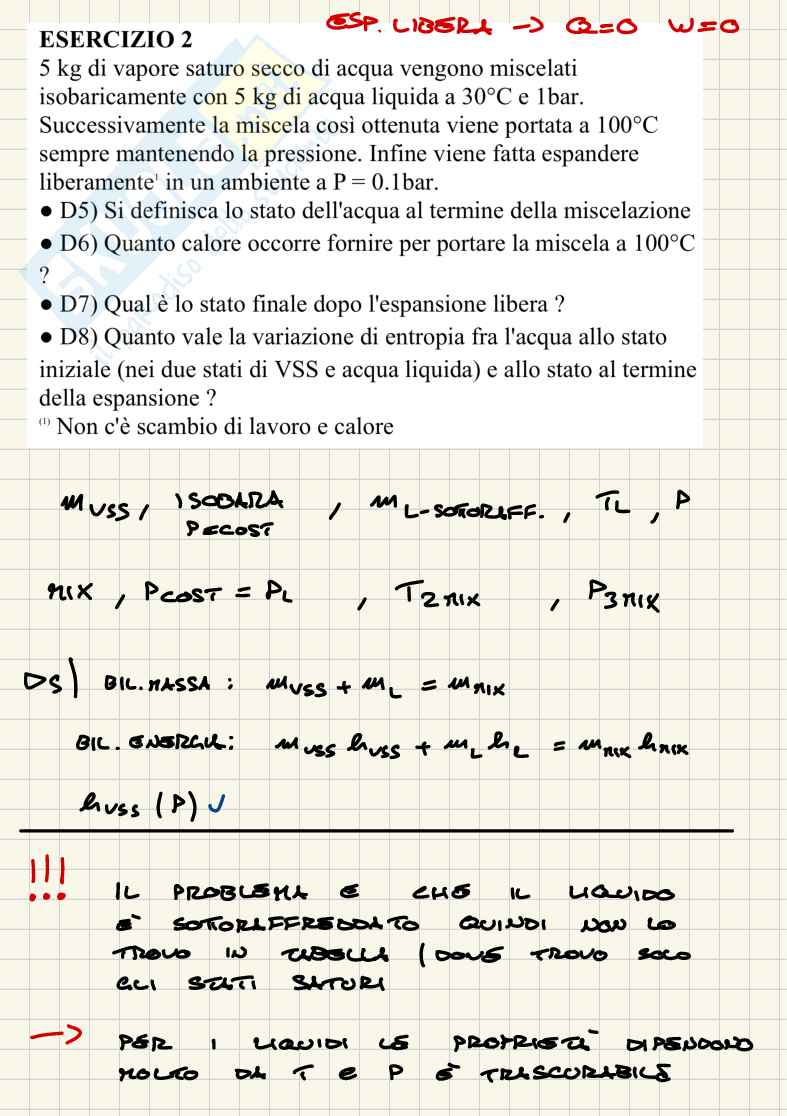 ESP. LIBERA → Q=0 W=0
ESERCIZIO 2
5 kg di vapore saturo secco di acqua vengono miscelati
isobaricamente con 5 kg di acqua liquida a 30°C e 1bar.
Successivamente la miscela così ottenuta viene portata a 100°C
sempre mantenendo la pressione. Infine viene fatta espandere
liberamente¹ in un ambiente a P = 0.1bar.
● D5) Si definisca lo stato dell'acqua al termine della miscelazione
● D6) Quanto calore occorre fornire per portare la miscela a 100°C
?
● D7) Qual è lo stato finale dopo l'espansione libera ?
● D8) Quanto vale la variazione di entropia fra l'acqua allo stato
iniziale (nei due stati di VSS e acqua liquida) e allo stato al termine
della espansione ?
(1) Non c'è scambio di lavoro e calore
m VSS , ISOBARA , m L-SOTORAFF. , TL , P
P=COST
MIX , PCOST = PL , T2 MIX , P3 MIX
D5) BIL. MASSA : mVSS + mL = mMIX
BIL. ENERGIA: mVSS hVSS + mL hL = mMIX hMIX
hVSS (P) ✓
!!! IL PROBLEMA È CHE IL LIQUIDO
È SOTTORAFFREDDATO QUINDI NON LO
TROVO IN TABELLA (DOVE TROVO SOLO
GLI STATI SATURI
→ PER I LIQUIDI LE PROPRIETÀ DIPENDONO
MOLTO DA T E P È TRASCURABILE